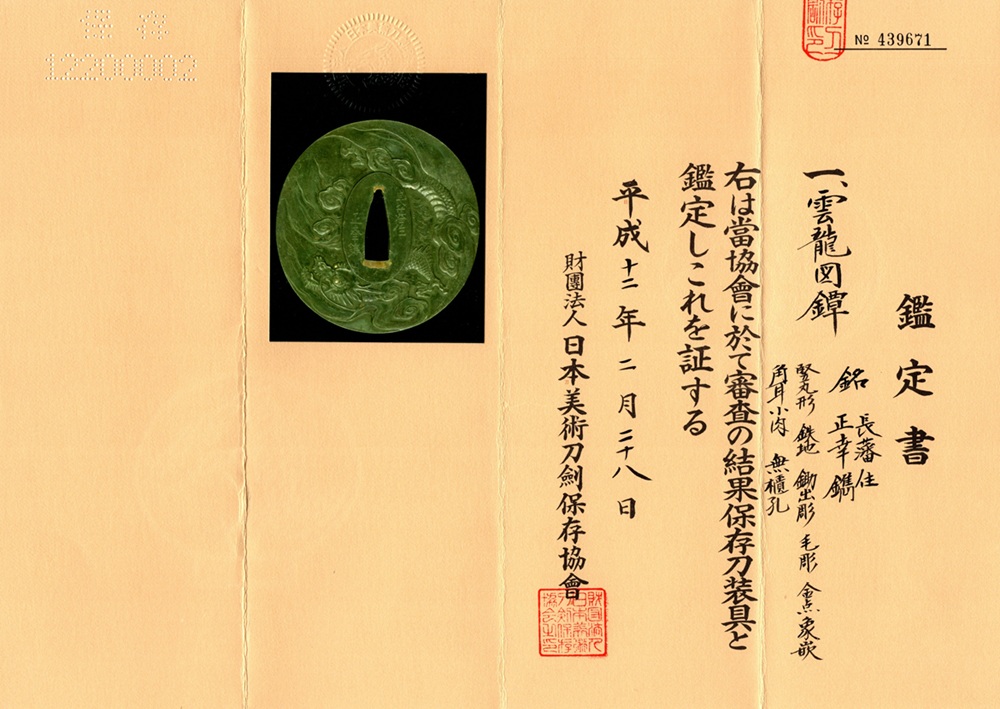 № 439671
鑑定書
一、雲龍図鐔
銘 長藩住
正幸鐫
竪丸形 鉄地 鋤出彫 毛彫 金点象嵌
角耳小肉 無櫃孔
右は當協會に於て審査の結果保存刀装具と
鑑定しこれを証する
平成十二年二月二十八日
財團法人日本美術刀劍保存協會
保存
12200002